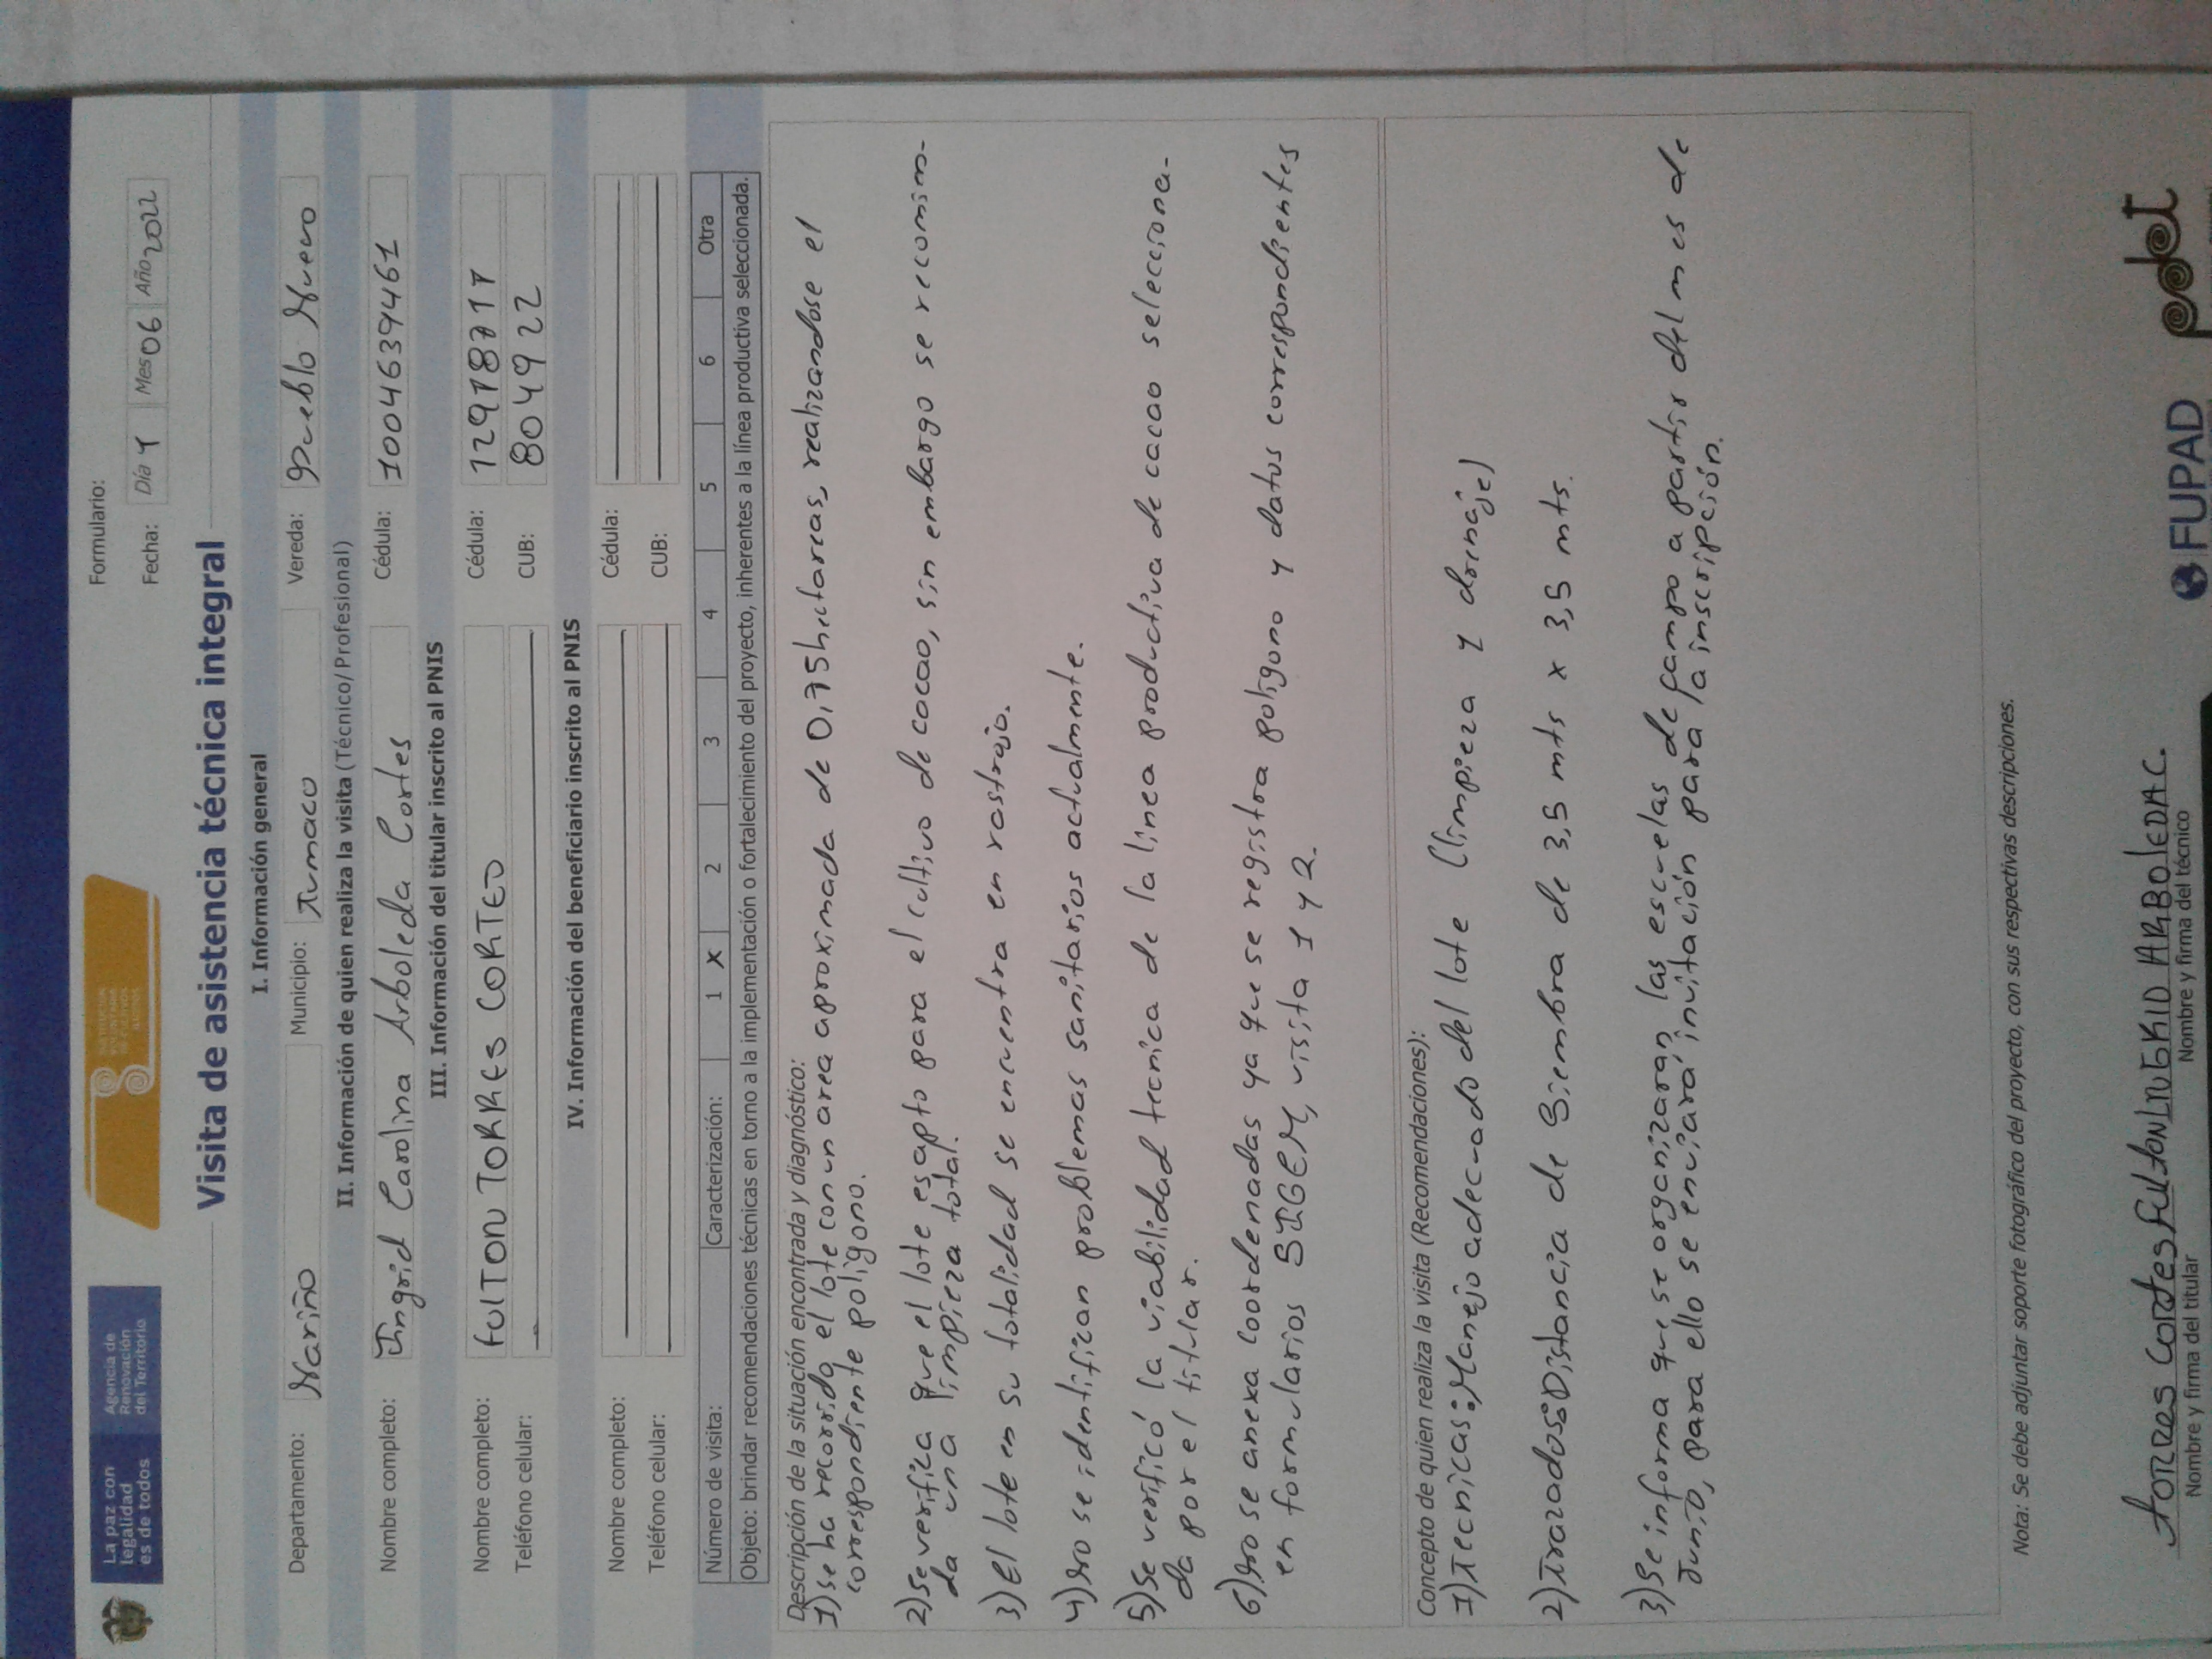 La paz con
legalidad
es de todos
Agencia de
Renovación
del Territorio
Formulario:
Fecha: Día 4 Mes 06 Año 2022
Visita de asistencia técnica integral
I. Información general
Departamento: Nariño Municipio: Tumaco Vereda: Pueblo Nuevo
II. Información de quien realiza la visita (Técnico/Profesional)
Nombre completo: Ingrid Carolina Arboleda Cortes Cédula: 1004639461
III. Información del titular inscrito al PNIS
Nombre completo: FULTON TORRES CORTEO Cédula:
Teléfono celular: CUB: 804922
IV. Información del beneficiario inscrito al PNIS
Nombre completo: Cédula:
Teléfono celular: CUB:
Número de visita: Caracterización: 1 X 2 3 4 5 6 Otra
Objeto: brindar recomendaciones técnicas en torno a la implementación o fortalecimiento del proyecto, inherentes a la línea productiva seleccionada.
Descripción de la situación encontrada y diagnóstico:
1) se ha recorrido el lote con un area aproximada de 0,75 hectareas, realizandose el
correspondiente poligono.
2) se verifica que el lote es apto para el cultivo de cacao, sin embargo se recomien-
da una limpieza total.
3) El lote en su totalidad se encuentra en rastrojo.
4) No se identifican problemas sanitarios actualmente.
5) Se verificó la viabilidad tecnica de la linea productiva de cacao selecciona-
da por el titular.
6) No se anexa coordenadas ya que se registra poligono y datos correspondientes
en formularios SIGEM, visita 1 y 2.
Concepto de quien realiza la visita (Recomendaciones):
1) Tecnicas: Manejo adecuado del lote (limpieza y drenaje)
2) Trazados: Distancia de Siembra de 3,5 mts x 3,5 mts.
3) Se informa que se organizaran las escuelas de campo a partir del mes de
Junio, para ello se enviará invitación para la inscripción.
Nota: Se debe adjuntar soporte fotográfico del proyecto, con sus respectivas descripciones.
Torres Cortes Fulton
Nombre y firma del titular
INGRID ARBOLEDA C.
Nombre y firma del técnico
FUPAD
pdet